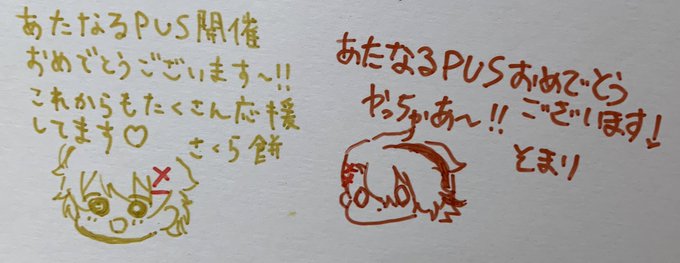 あたなるPUS開催
おめでとうございます〜!!
これからもたくさん応援
してます♡
さくら餅
あたなるPUSおめでとう
ございます!
やっちゃあ〜!!
そまり